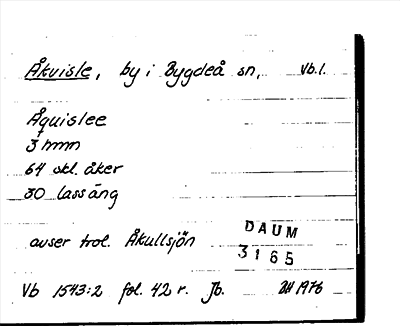 Åkvisle, by i Bygdeå sn, Vb.l.
Åquislee
3 hmn
64 skl. åker
30 lass äng
avser trol. Åkullsjön
DAUM
3165
Vb 1543:2 fol. 42 r. Jb. 1976